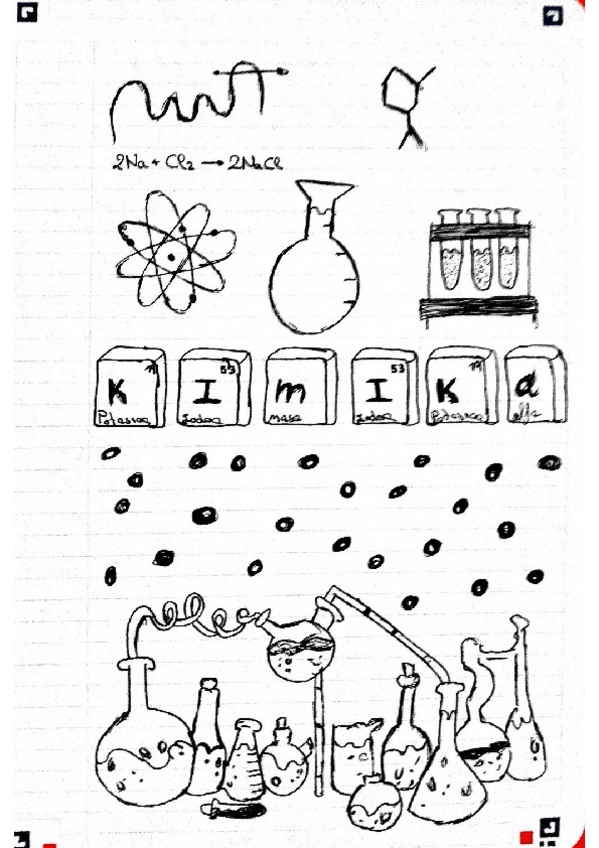 2Na + Cl₂ → 2NaCl
19 53 53 19
K I m I K α
Potasioa Iodoa masa Iodoa Potasioa alfa